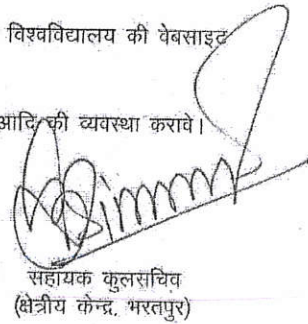 विश्वविद्यालय की वेबसाइट
आदि की व्यवस्था करावे।
सहायक कुलसचिव
(क्षेत्रीय केन्द्र, भरतपुर)